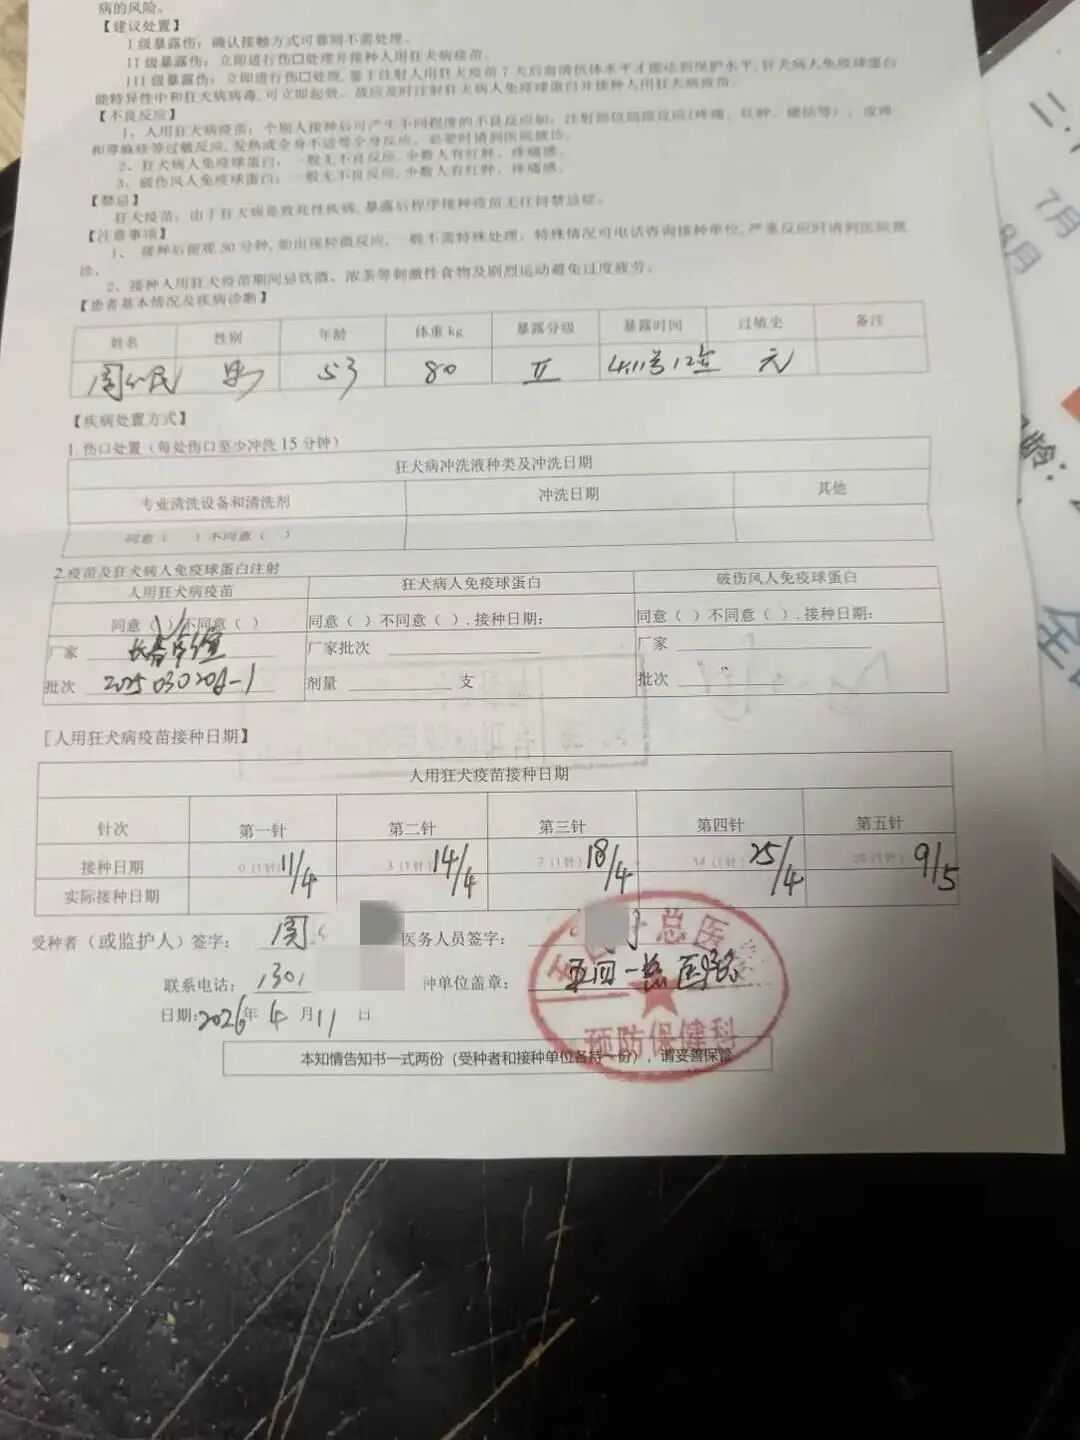 病的风险。
【建议处置】
I 级暴露伤：确认接触方式可靠则不需处理。
II 级暴露伤：立即进行伤口处理并接种人用狂犬病疫苗。
III 级暴露伤：立即进行伤口处理，鉴于注射人用狂犬疫苗 7 天后血清抗体水平才能达到保护水平，狂犬病人免疫球蛋白
能特异性中和狂犬病病毒，可立即起效。故应及时注射狂犬病人免疫球蛋白并接种人用狂犬病疫苗。
【不良反应】
1、人用狂犬病疫苗：个别人接种后可产生不同程度的不良反应如：注射部位局部反应(疼痛、红肿、硬结等)，皮疹
和荨麻疹等过敏反应，发热或全身不适等全身反应。必要时请到医院就诊。
2、狂犬病人免疫球蛋白：一般无不良反应，少数人有红肿、疼痛感。
3、破伤风人免疫球蛋白：一般无不良反应，少数人有红肿、疼痛感。
【禁忌】
狂犬疫苗：由于狂犬病是致死性疾病，暴露后程序接种疫苗无任何禁忌症。
【注意事项】
1、接种后留观 30 分钟，如出现轻微反应，一般不需特殊处理，特殊情况可电话咨询接种单位，严重反应时请到医院就
诊。
2、接种人用狂犬疫苗期间忌饮酒、浓茶等刺激性食物及剧烈运动避免过度疲劳。
【患者基本情况及疾病诊断】
姓名 性别 年龄 体重 kg 暴露分级 暴露时间 过敏史 备注
周 民 男 53 80 II 4.11号12点 无
【疾病处置方式】
1. 伤口处置（每处伤口至少冲洗 15 分钟）
狂犬病冲洗液种类及冲洗日期
专业清洗设备和清洗剂 冲洗日期 其他
同意（ ）不同意（ ）
2.疫苗及狂犬病人免疫球蛋白注射
人用狂犬病疫苗 狂犬病人免疫球蛋白 破伤风人免疫球蛋白
同意（√）不同意（ ） 同意（ ）不同意（ ）.接种日期： 同意（ ）不同意（ ）.接种日期：
厂家 长春卓谊 厂家批次 厂家
批次 剂量 支 批次
[人用狂犬病疫苗接种日期】
人用狂犬疫苗接种日期
针次 第一针 第二针 第三针 第四针 第五针
接种日期 0 (1针) 11/4 3 (1针) 14/4 7 (1针) 18/4 14 (1针) 25/4 28 (1针) 9/5
实际接种日期
受种者（或监护人）签字： 周 医务人员签字：
联系电话：1301 种单位盖章： 医院
总医
日期：2026年 4 月 11 日
预防保健科
本知情告知书一式两份（受种者和接种单位各持一份），请妥善保管
三、
7月
8月
龄：
全